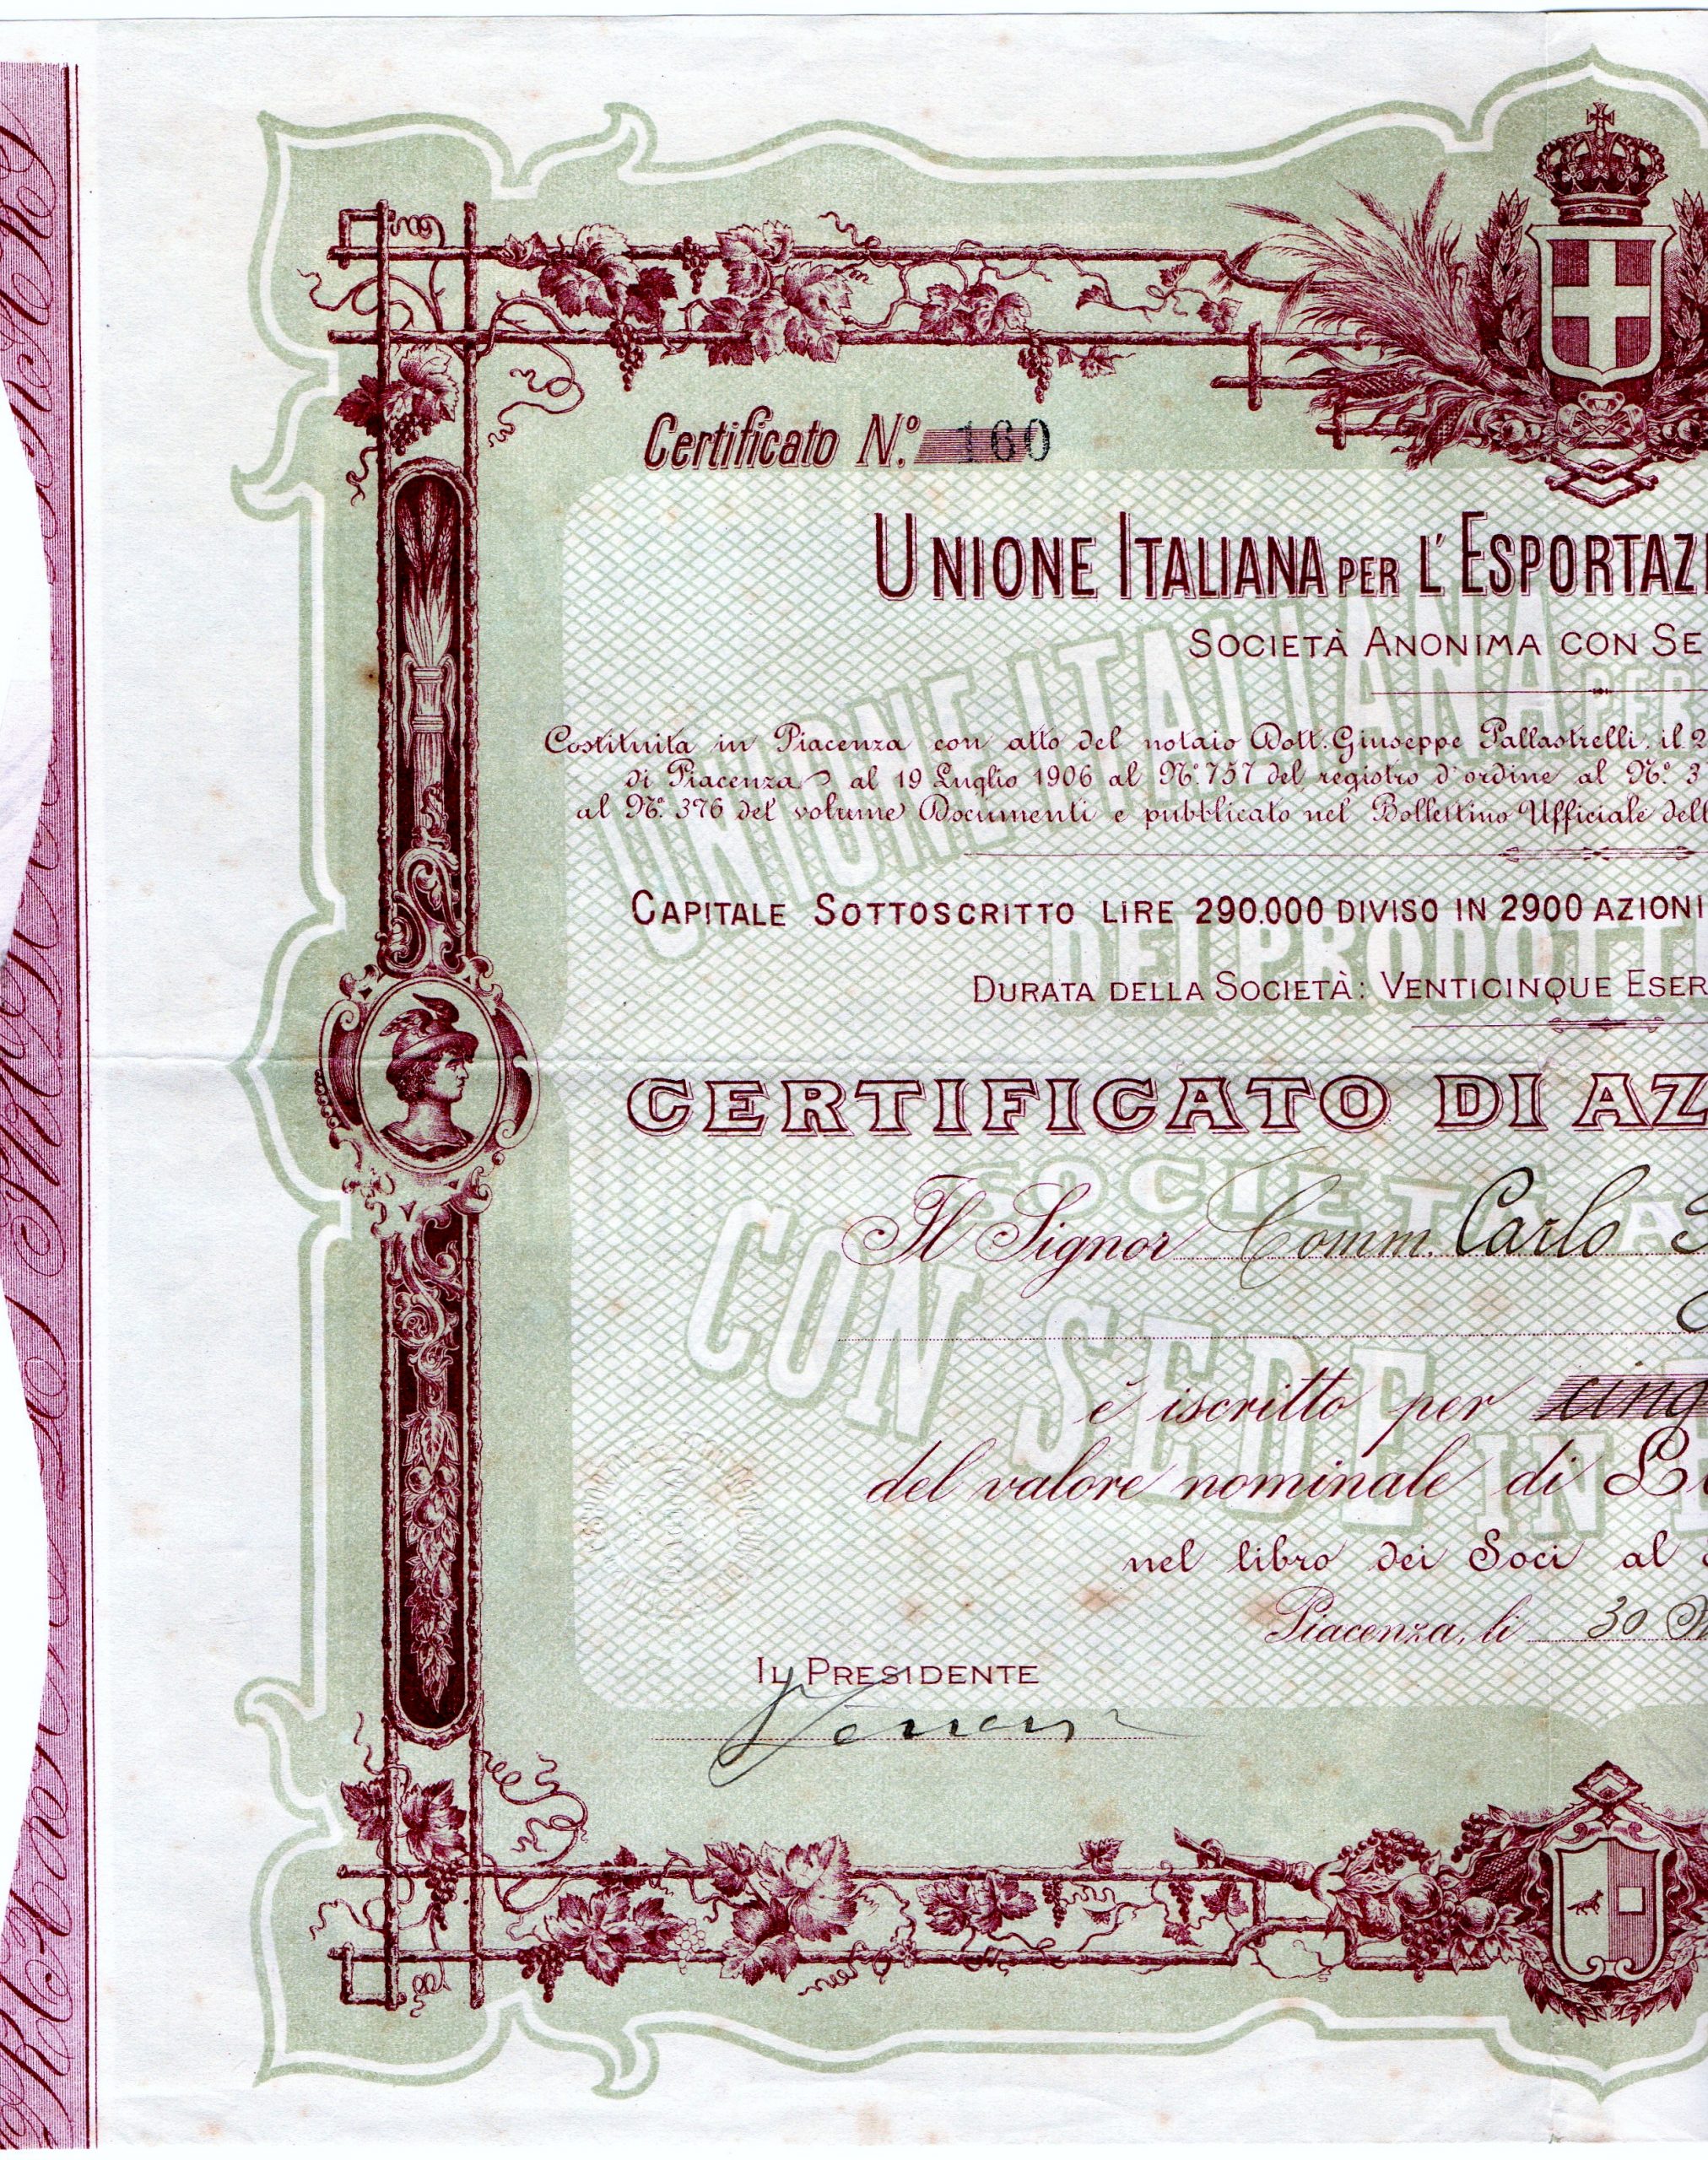 Certificato N.º 160
UNIONE ITALIANA PER L'ESPORTAZI
SOCIETÀ ANONIMA CON SE
Costituita in Piacenza con atto del notaio Dott. Giuseppe Pallastrelli, il 2
di Piacenza al 19 Luglio 1906 al N.º 757 del registro d'ordine al N.º 3
al N.º 376 del volume Documenti e pubblicato nel Bollettino Ufficiale dell
CAPITALE SOTTOSCRITTO LIRE 290.000 DIVISO IN 2900 AZIONI
DURATA DELLA SOCIETÀ: VENTICINQUE ESER
CERTIFICATO DI AZ
Il Signor Comm. Carlo
è iscritto per cinq
del valore nominale di L
nel libro dei Soci al
Piacenza, li 30
IL PRESIDENTE
UNIONE ITALIANA PER
DEI PRODOTTI
SOCIETÀ A
CON SEDE IN